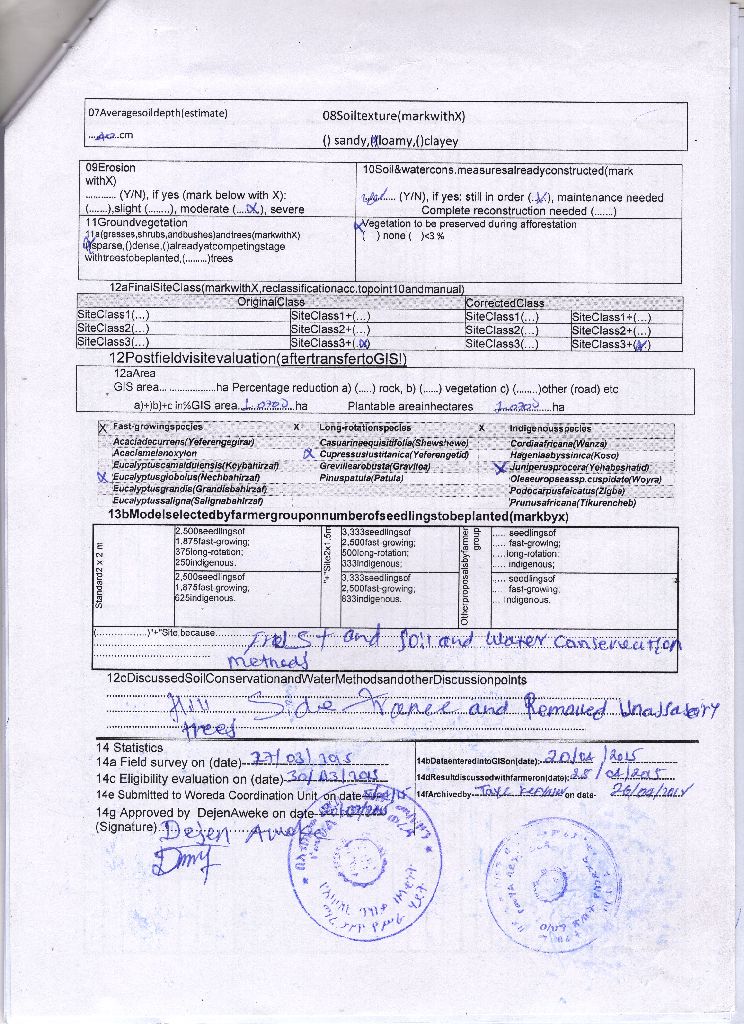 07Averagesoildepth(estimate)
08Soiltexture(markwithX)
cm
() sandy,()loamy,()clayey
09Erosion
withX)
............ (Y/N), if yes (mark below with X):
(.......),slight (........), moderate (....X.), severe
10Soil&watercons.measuresalreadyconstructed(mark
...... (Y/N), if yes: still in order (..X), maintenance needed
Complete reconstruction needed (.......)
11Groundvegetation
11a(grasses,shrubs,andbushes)andtrees(markwithX)
()sparse,()dense,()alreadyatcompetingstage
withtreestobeplanted,(.........)trees
Vegetation to be preserved during afforestation
) none ( )<3 %
12aFinalSiteClass(markwithX,reclassificationacc.topoint10andmanual)
OriginalClass CorrectedClass
SiteClass1(...) SiteClass1+(...) SiteClass1(...) SiteClass1+(...)
SiteClass2(...) SiteClass2+(...) SiteClass2(...) SiteClass2+(...)
SiteClass3(...) SiteClass3+(.X) SiteClass3(...) SiteClass3+(X)
12Postfieldvisitevaluation(aftertransfertoGIS!)
12aArea
GIS area...................ha Percentage reduction a) (.....) rock, b) (.....) vegetation c) (.......)other (road) etc
a)+)b)+c in%GIS area 1.0700 ha Plantable areainhectares 1.0700 ha
X Fast-growingspecies X Long-rotationspecies X Indigenousspecies
Acaciadecurrens(Yeferengegirar) Casuarinaequisitifolia(Shewshewe) Cordiaafricana(Wanza)
Acaciamelanoxylon X Cupressuslustitanica(Yeferengetid) Hageniaabyssinica(Koso)
Eucalyptuscamalduiensis(Keybahirzaf) Grevillearobusta(Gravilea) X Juniperusprocera(Yehabeshatid)
X Eucalyptusglobolus(Nechbahirzaf) Pinuspatula(Patula) Oleaeuropaeassp.cuspidate(Woyra)
Eucalyptusgrandis(Grandisbahirzaf) Podocarpusfalcatus(Zigba)
Eucalyptussaligna(Salignabahirzaf) Prunusafricana(Tikurencheb)
13bModelselectedbyfarmergrouponnumberofseedlingstobeplanted(markbyx)
Standard2 x 2 m
2,500seedlingsof
1,875fast-growing;
375long-rotation;
250indigenous.
2,500seedlingsof
1,875fast-growing;
625indigenous.
"+"Site2x1.5m
3,333seedlingsof
2,500fast-growing;
500long-rotation;
333indigenous;
3,333seedlingsof
2,500fast-growing;
833indigenous.
Otherproposalsbyfarmer
group
..... seedlingsof
..... fast-growing;
.....long-rotation:
..... indigenous;
..... seedlingsof
..... fast-growing;
... Indigenous.
(...............)"+"Site,because and Soil and Water Conservation
methods
12cDiscussedSoilConservationandWaterMethodsandotherDiscussionpoints
Hill Side and Removed
trees
14 Statistics
14a Field survey on (date) 27/03/2015
14bDataenteredintoGISon(date): 20/04/2015
14c Eligibility evaluation on (date) 30/03/2015
14dResultdiscussedwithfarmeron(date): 25/04/2015
14e Submitted to Woreda Coordination Unit on date
14fArchivedby Taye on date- 26/04/2015
14g Approved by DejenAweke on date
(Signature) Dejen Aweke